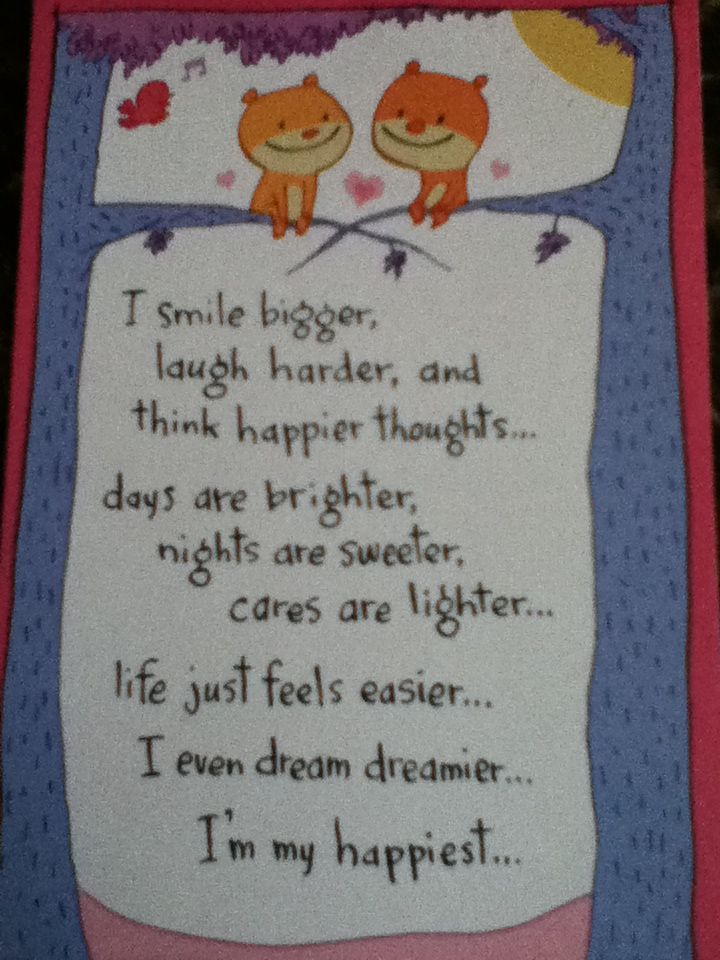 I smile bigger,
laugh harder, and
think happier thoughts...
days are brighter,
nights are sweeter,
cares are lighter...
life just feels easier...
I even dream dreamier...
I'm my happiest...